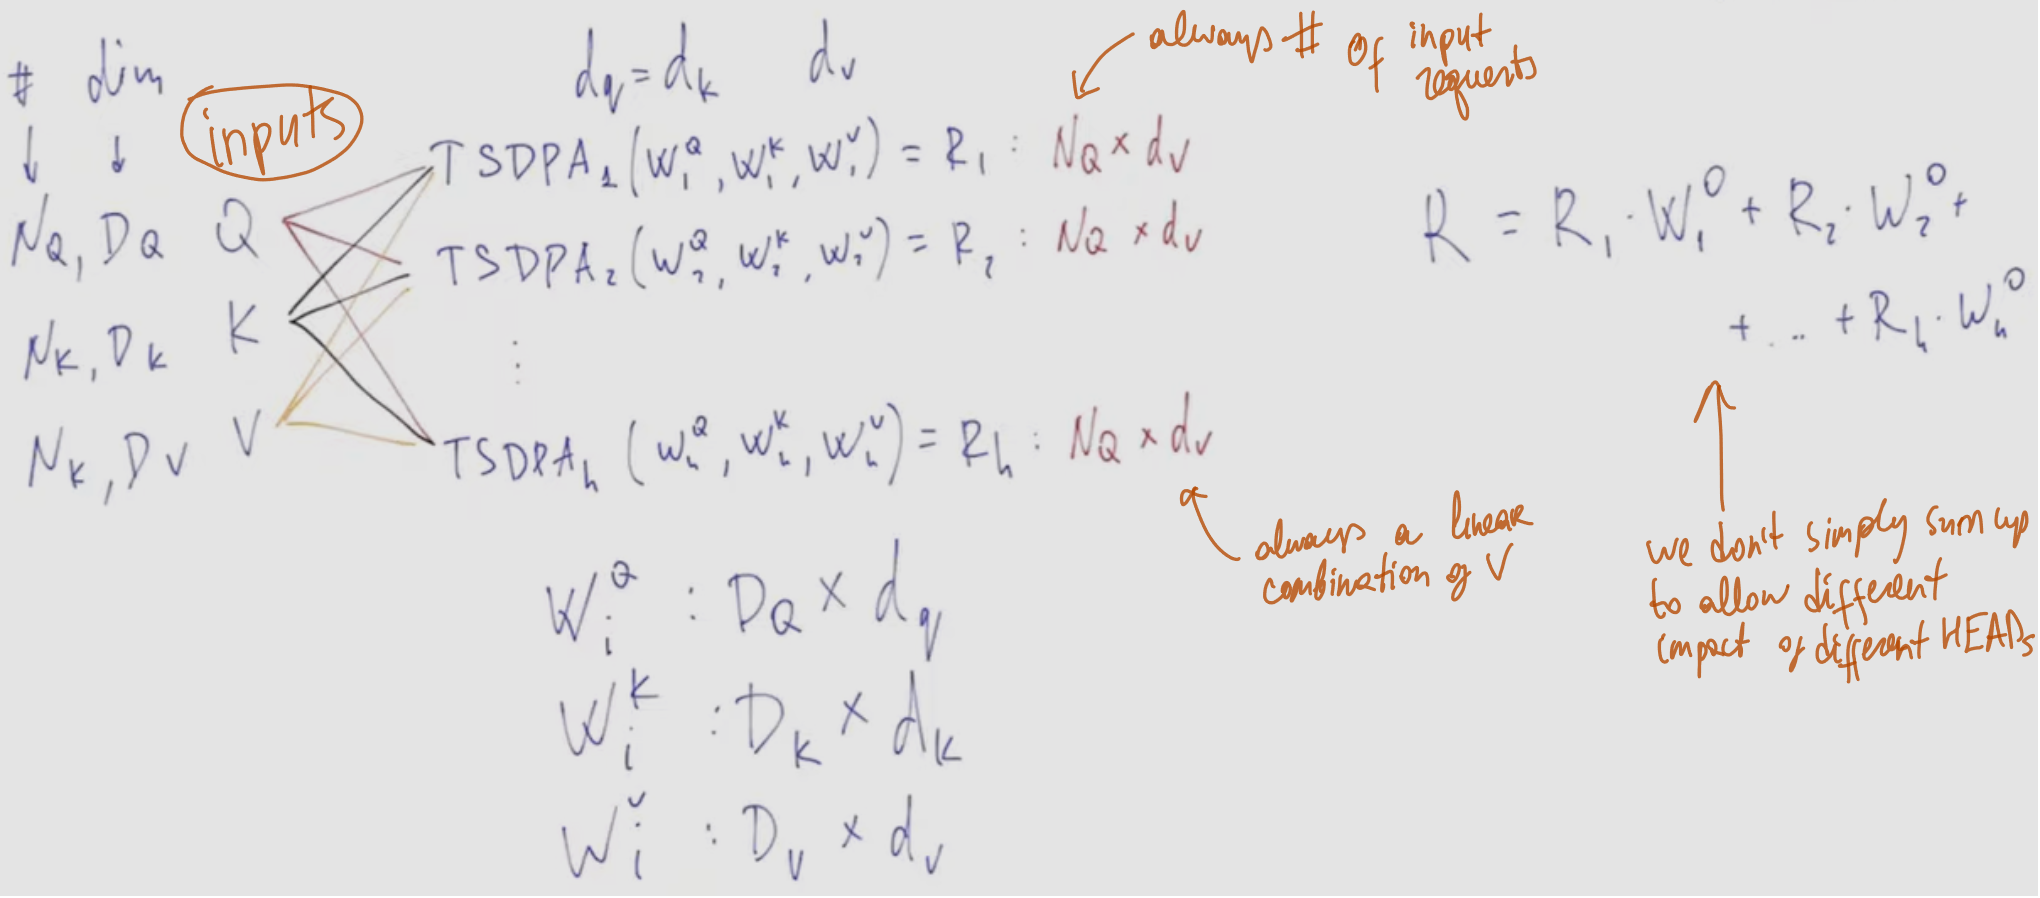 # dim
inputs
d_q = d_k d_v
always # of input
requests
TSDPA_1 (W_1^Q, W_1^K, W_1^V) = R_1 : N_Q × d_V
N_Q, D_Q Q
TSDPA_2 (W_2^Q, W_2^K, W_2^V) = R_2 : N_Q × d_V
R = R_1 · W_1^O + R_2 · W_2^O +
+ ... + R_h · W_h^O
N_K, D_K K
⋮
N_K, D_V V
TSDPA_h (W_h^Q, W_h^K, W_h^V) = R_h : N_Q × d_V
always a linear
combination of V
we don't simply sum up
to allow different
impact of different HEADs
W_i^Q : D_Q × d_q
W_i^K : D_K × d_K
W_i^V : D_V × d_V